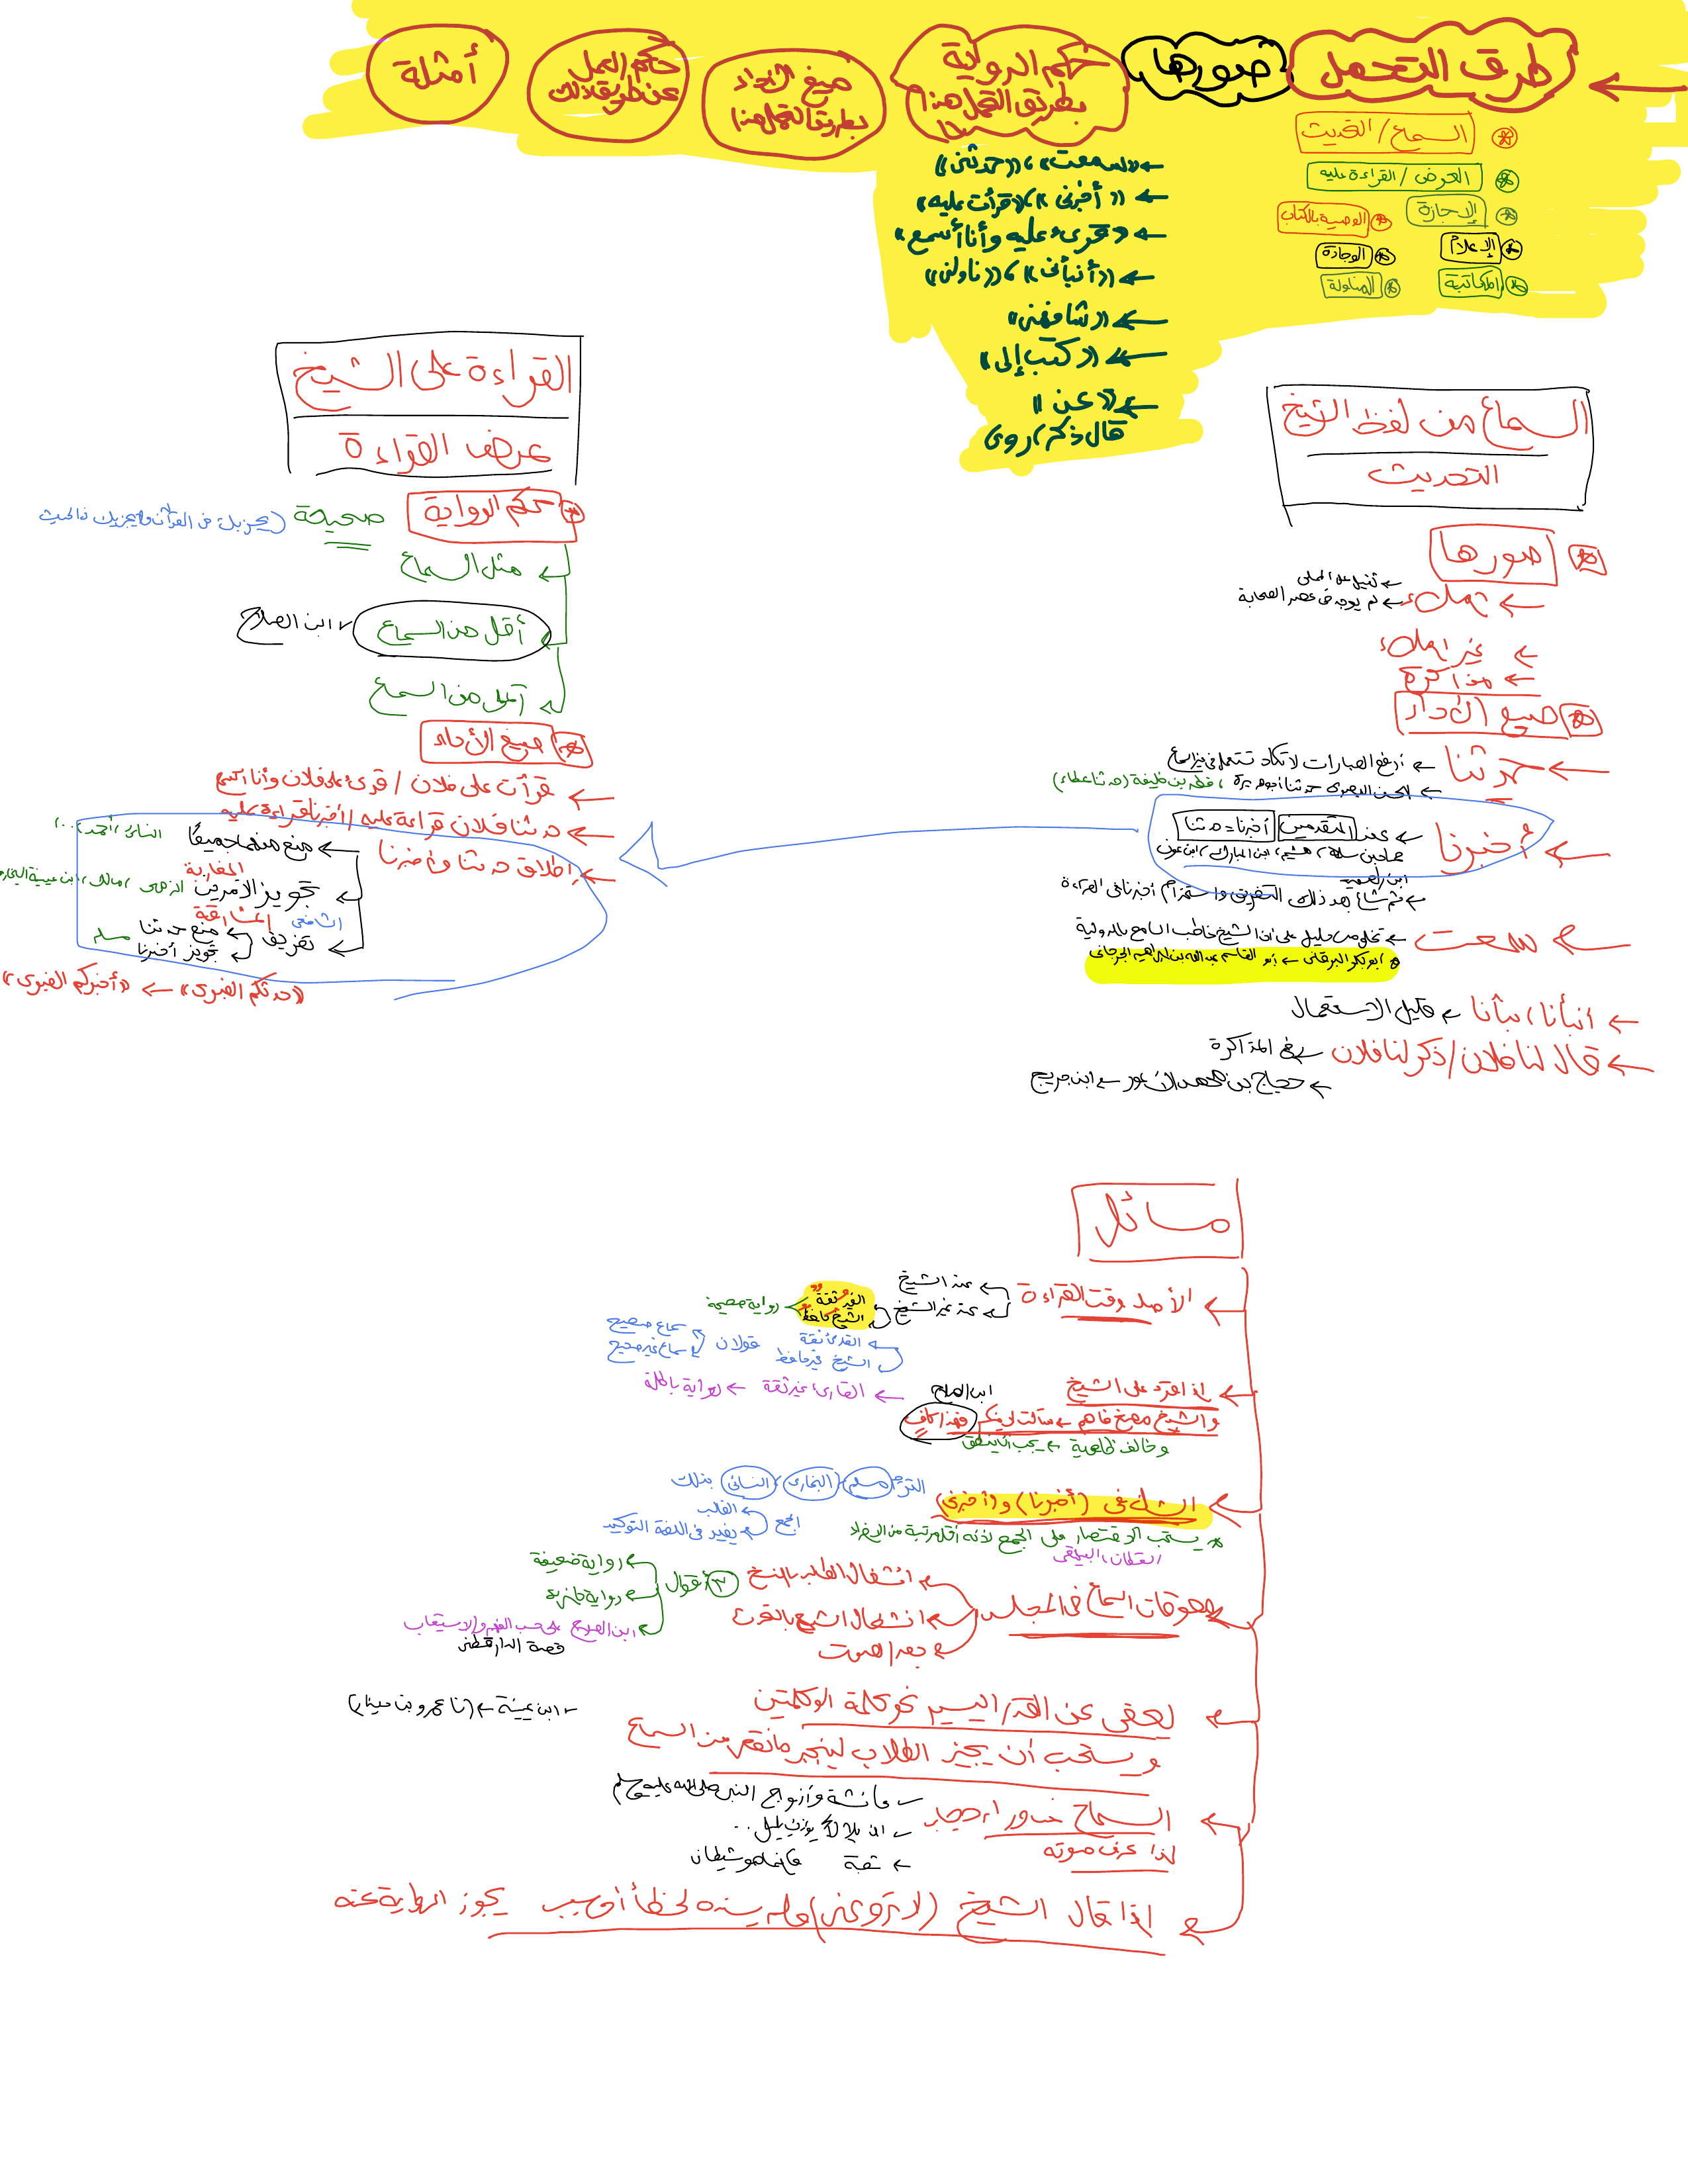 طرق التحمل
صورها
حكم الرواية بطريق التحمل هذا
صيغ الأداء بطريق التحمل هذا
حكم العمل عن طريق ذلك
أمثلة
السماع / التحديث
العرض / القراءة عليه
الإجازة
الوصية بالكتاب
الإعلام
الوجادة
المكاتبة
المناولة
«سمعت»، «حدثني»
«أخبرني»، «قرأت عليه»
«قرئ عليه وأنا أسمع»
«أنبأني»، «ناولني»
«شافهني»
«كتب إلي»
«عن»
قال ذكر روى
السماع من لفظ الشيخ
التحديث
صورها
إملاء
ثقيل على المملي
لم يوجد في عصر الصحابة
غير إملاء
مذاكرة
صيغ الأداء
حدثنا
أرفع العبارات لا تكاد تستعمل في غير السماع
الحسن البصري حدثنا أبو هريرة، فطر بن خليفة (حدثنا عطاء)
أخبرنا
عند المتقدمين أخبرنا = حدثنا
حماد بن سلمة، هشيم، ابن المبارك، ابن عون
ثم شاع بعد ذلك التفريق واستخدام أخبرنا في القراءة
سمعت
تخلو من دليل على أن الشيخ خاطب السامع بالرواية
أبو بكر البرقاني ← أبو القاسم عبد الله بن إبراهيم الجرجاني
أنبأنا، نبأنا
قليل الاستعمال
قال لنا فلان / ذكر لنا فلان
في المذاكرة
حجاج بن محمد الأعور ← ابن جريج
القراءة على الشيخ
عرض القراءة
حكم الرواية
صحيحة
(يجزيك في القرآن ولا يجزيك في الحديث
مثل السماع
أقل من السماع
ابن الصلاح
أعلى من السماع
صيغ الأداء
قرأت على فلان / قرئ على فلان وأنا أسمع
حدثنا فلان قراءة عليه / أخبرنا قراءة عليه
إطلاق حدثنا وأخبرنا
منع منهما جميعًا
النسائي، أحمد...
المغاربة
تجويز الأمرين
الزهري، مالك، ابن عيينة، البخاري
المشارقة
الشافعي
تفريق
منع حدثنا
تجويز أخبرنا
مسلم
«حدثكم الفبري» ← «أخبركم الفبري»
مسائل
الأصل وقت القراءة
عند الشيخ
عند غير الشيخ
الغير ثقة
الشيخ حافظ
رواية صحيحة
القارئ ثقة
الشيخ غير حافظ
قولان
سماع صحيح
سماع غير صحيح
القارئ غير ثقة ← رواية باطلة
إذا قرئ على الشيخ
ابن الصلاح
والشيخ مصغ فاهم ← ساكت لم ينكر فهذا كافٍ
وخالف ظاهرية ← يجب أن ينطق
الشك في (أخبرنا) و(أخبرني)
مسلم، البخاري، النسائي بذلك
الجمع
الغالب
يفيد في اللغة التوكيد
يستحب الاقتصار على الجمع لأنه أقل مرتبة من الإفراد
القطان، البيهقي
معوقات السماع في المجلس
انشغال الطلبة بالنسخ
انشغال الشيخ بالتحدث
بعد الصوت
٣ أقوال
رواية ضعيفة
رواية جائزة
ابن الصلاح على حسب الفهم والاستيعاب
قصة الدارقطني
يعفى عن القدر اليسير نحو كلمة أو كلمتين
ابن عيينة ← (نا عمرو بن دينار)
ويستحب أن يجيز الطلاب لينجبر ما نقص من السماع
السماع من وراء حجاب
إذا عرف صوته
عائشة وأزواج النبي صلى الله عليه وسلم
إن بلالا يؤذن بليل ..
شعبة فإنما هو شيطان
إذا قال الشيخ (لا ترو عني) ولم يسنده لخطأ أو سبب يجوز الرواية عنه